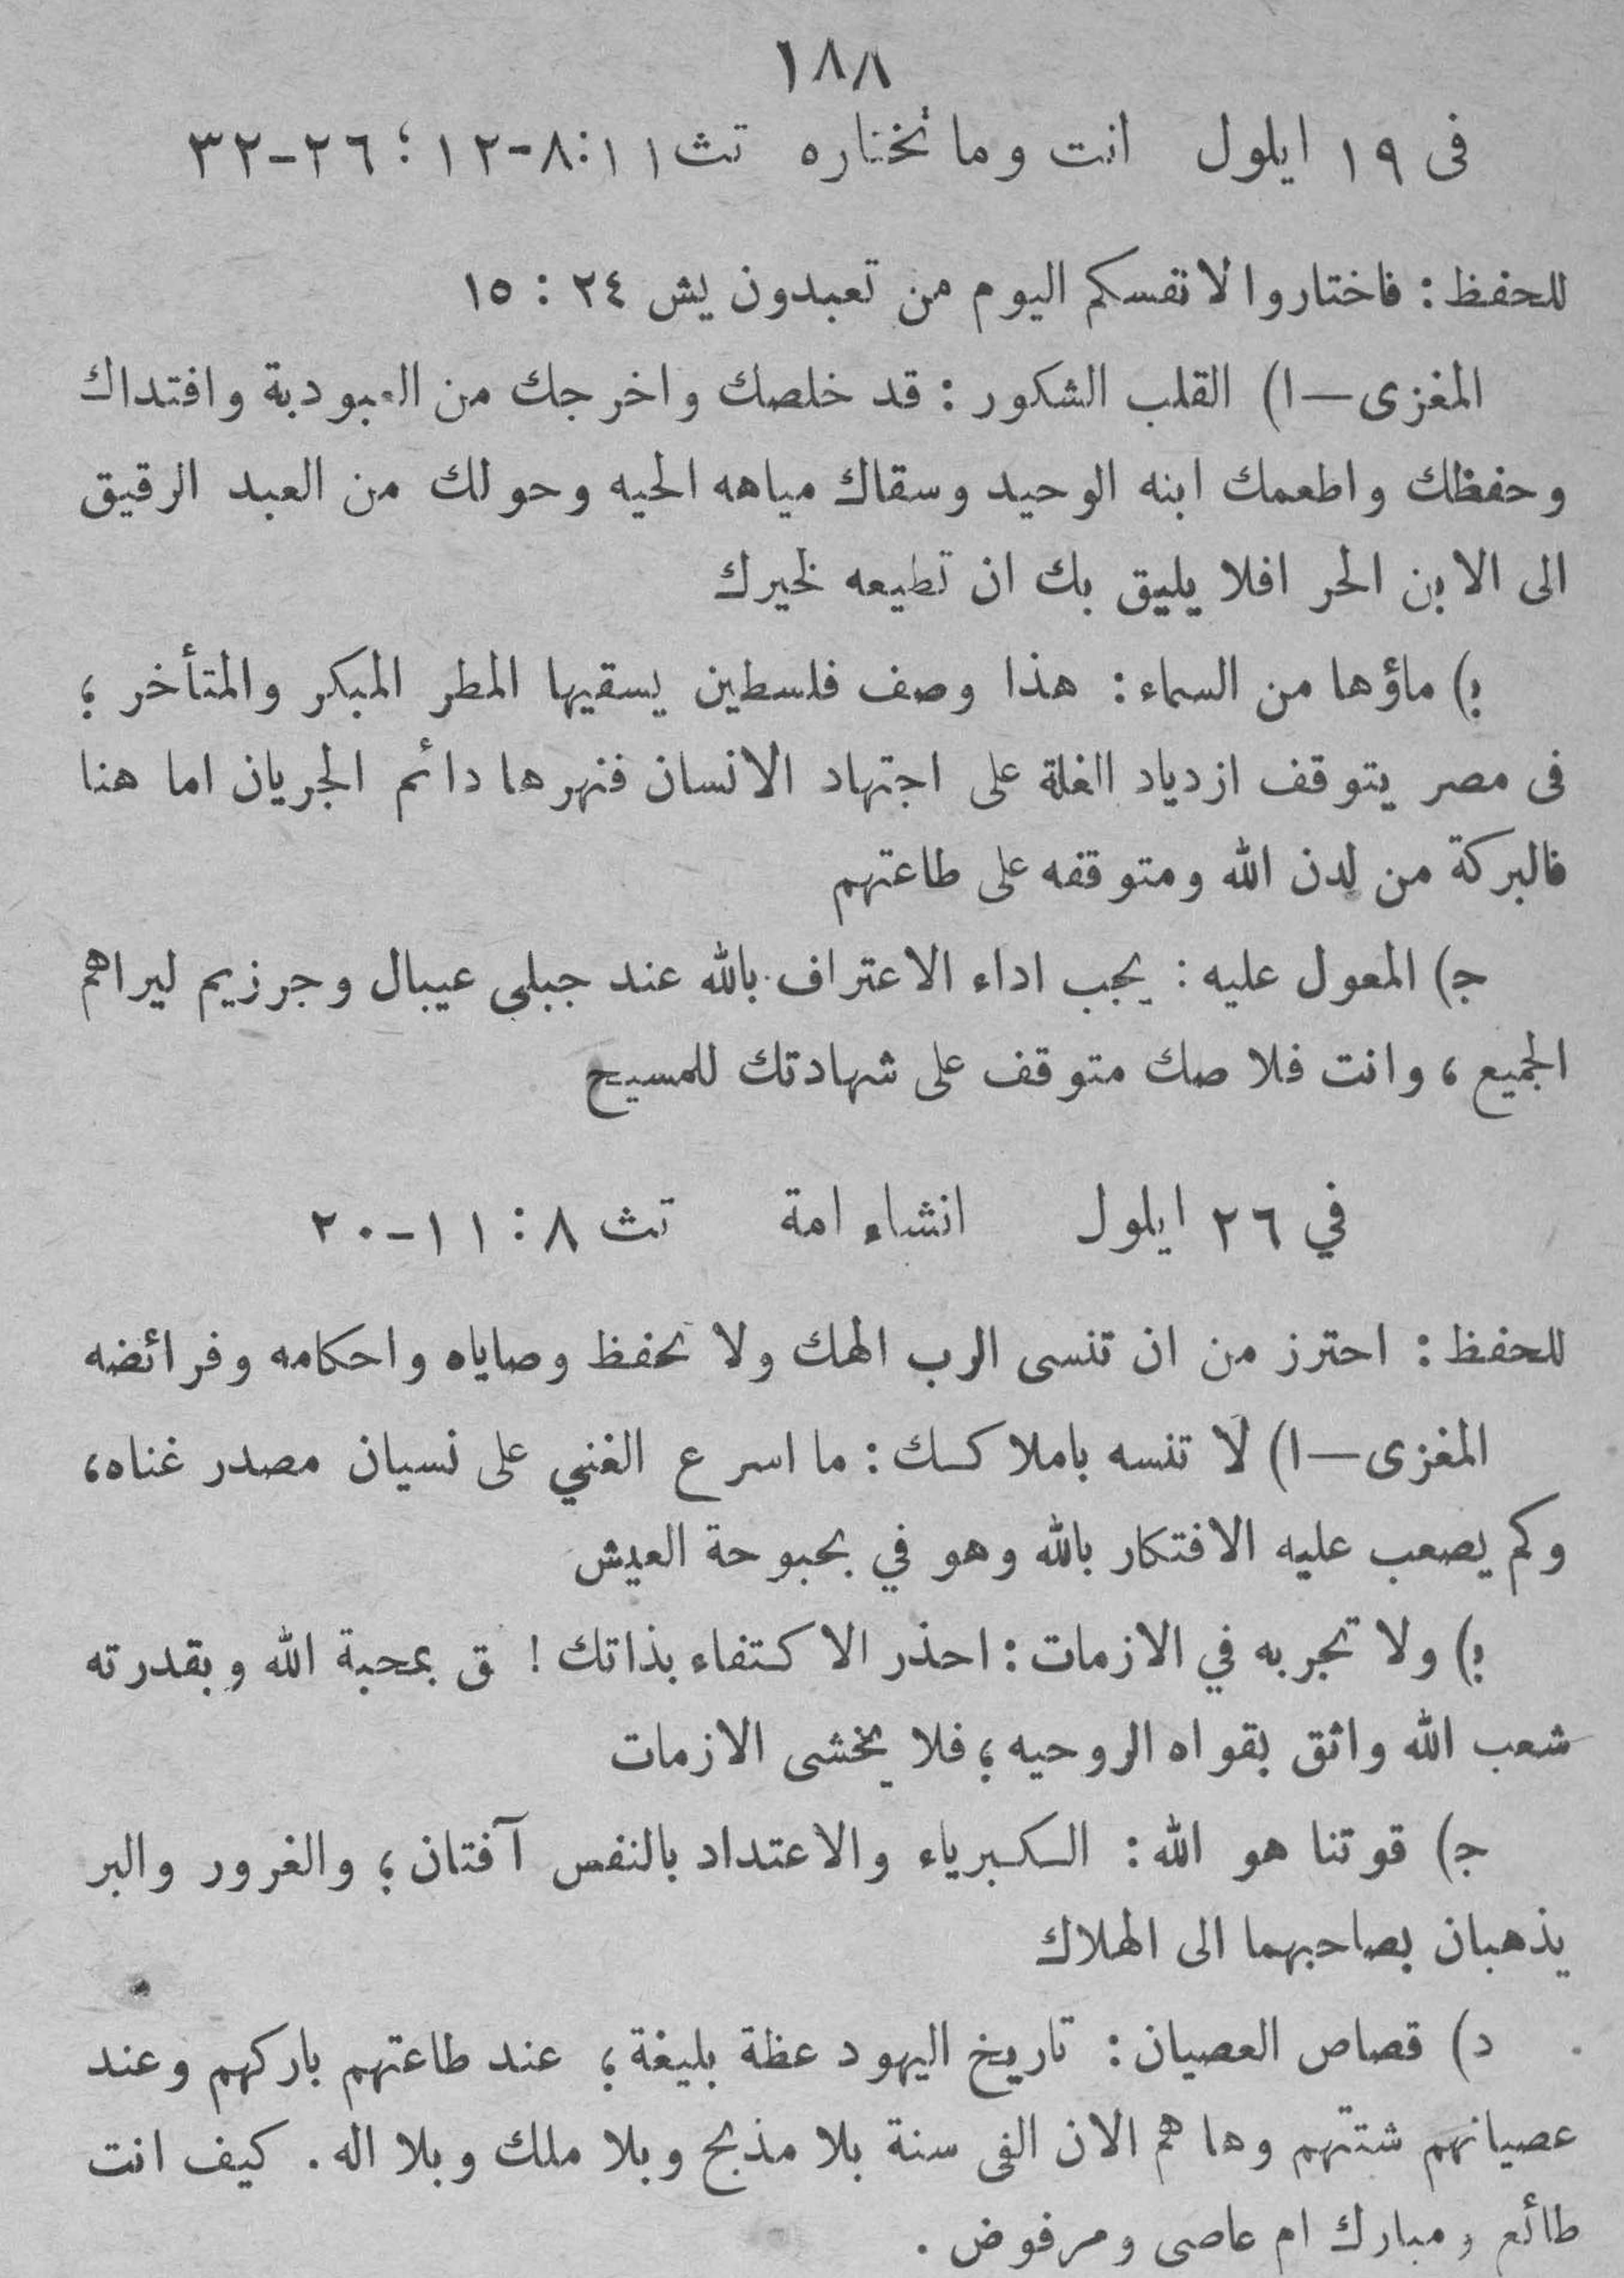 ١٨٨
فى ١٩ ايلول انت وما تختاره تث ١١:٨-١٢؛ ٢٦-٣٢
للحفظ: فاختاروا لانفسكم اليوم من تعبدون يش ٢٤ : ١٥
المغزى—ا) القلب الشكور: قد خلصك واخرجك من العبودية وافتداك
وحفظك واطعمك ابنه الوحيد وسقاك مياهه الحيه وحولك من العبد الرقيق
الى الابن الحر افلا يليق بك ان تطيعه لخيرك
ب) ماؤها من السماء: هذا وصف فلسطين يسقيها المطر المبكر والمتأخر؛
فى مصر يتوقف ازدياد الغلة على اجتهاد الانسان فنهرها دائم الجريان اما هنا
فالبركة من لدن الله ومتوقفه على طاعتهم
ج) المعول عليه: يجب اداء الاعتراف بالله عند جبلى عيبال وجرزيم ليراهم
الجميع، وانت فلاصك متوقف على شهادتك للمسيح
في ٢٦ ايلول انشاء امة تث ٨: ١١-٢٠
للحفظ: احترز من ان تنسى الرب الهك ولا تحفظ وصاياه واحكامه وفرائضه
المغزى—ا) لا تنسه باملاكك: ما اسرع الغني على نسيان مصدر غناه،
وكم يصعب عليه الافتكار بالله وهو في بحبوحة العيش
ب) ولا تجربه في الازمات: احذر الاكتفاء بذاتك! ق بمحبة الله وبقدرته
شعب الله واثق بقواه الروحيه؛ فلا يخشى الازمات
ج) قوتنا هو الله: الكبرياء والاعتداد بالنفس آفتان؛ والغرور والبر
يذهبان بصاحبهما الى الهلاك
د) قصاص العصيان: تاريخ اليهود عظة بليغة؛ عند طاعتهم باركهم وعند
عصيانهم شتتهم وها هم الان الفى سنة بلا مذبح وبلا ملك وبلا اله. كيف انت
طائع ومبارك ام عاصى ومرفوض.